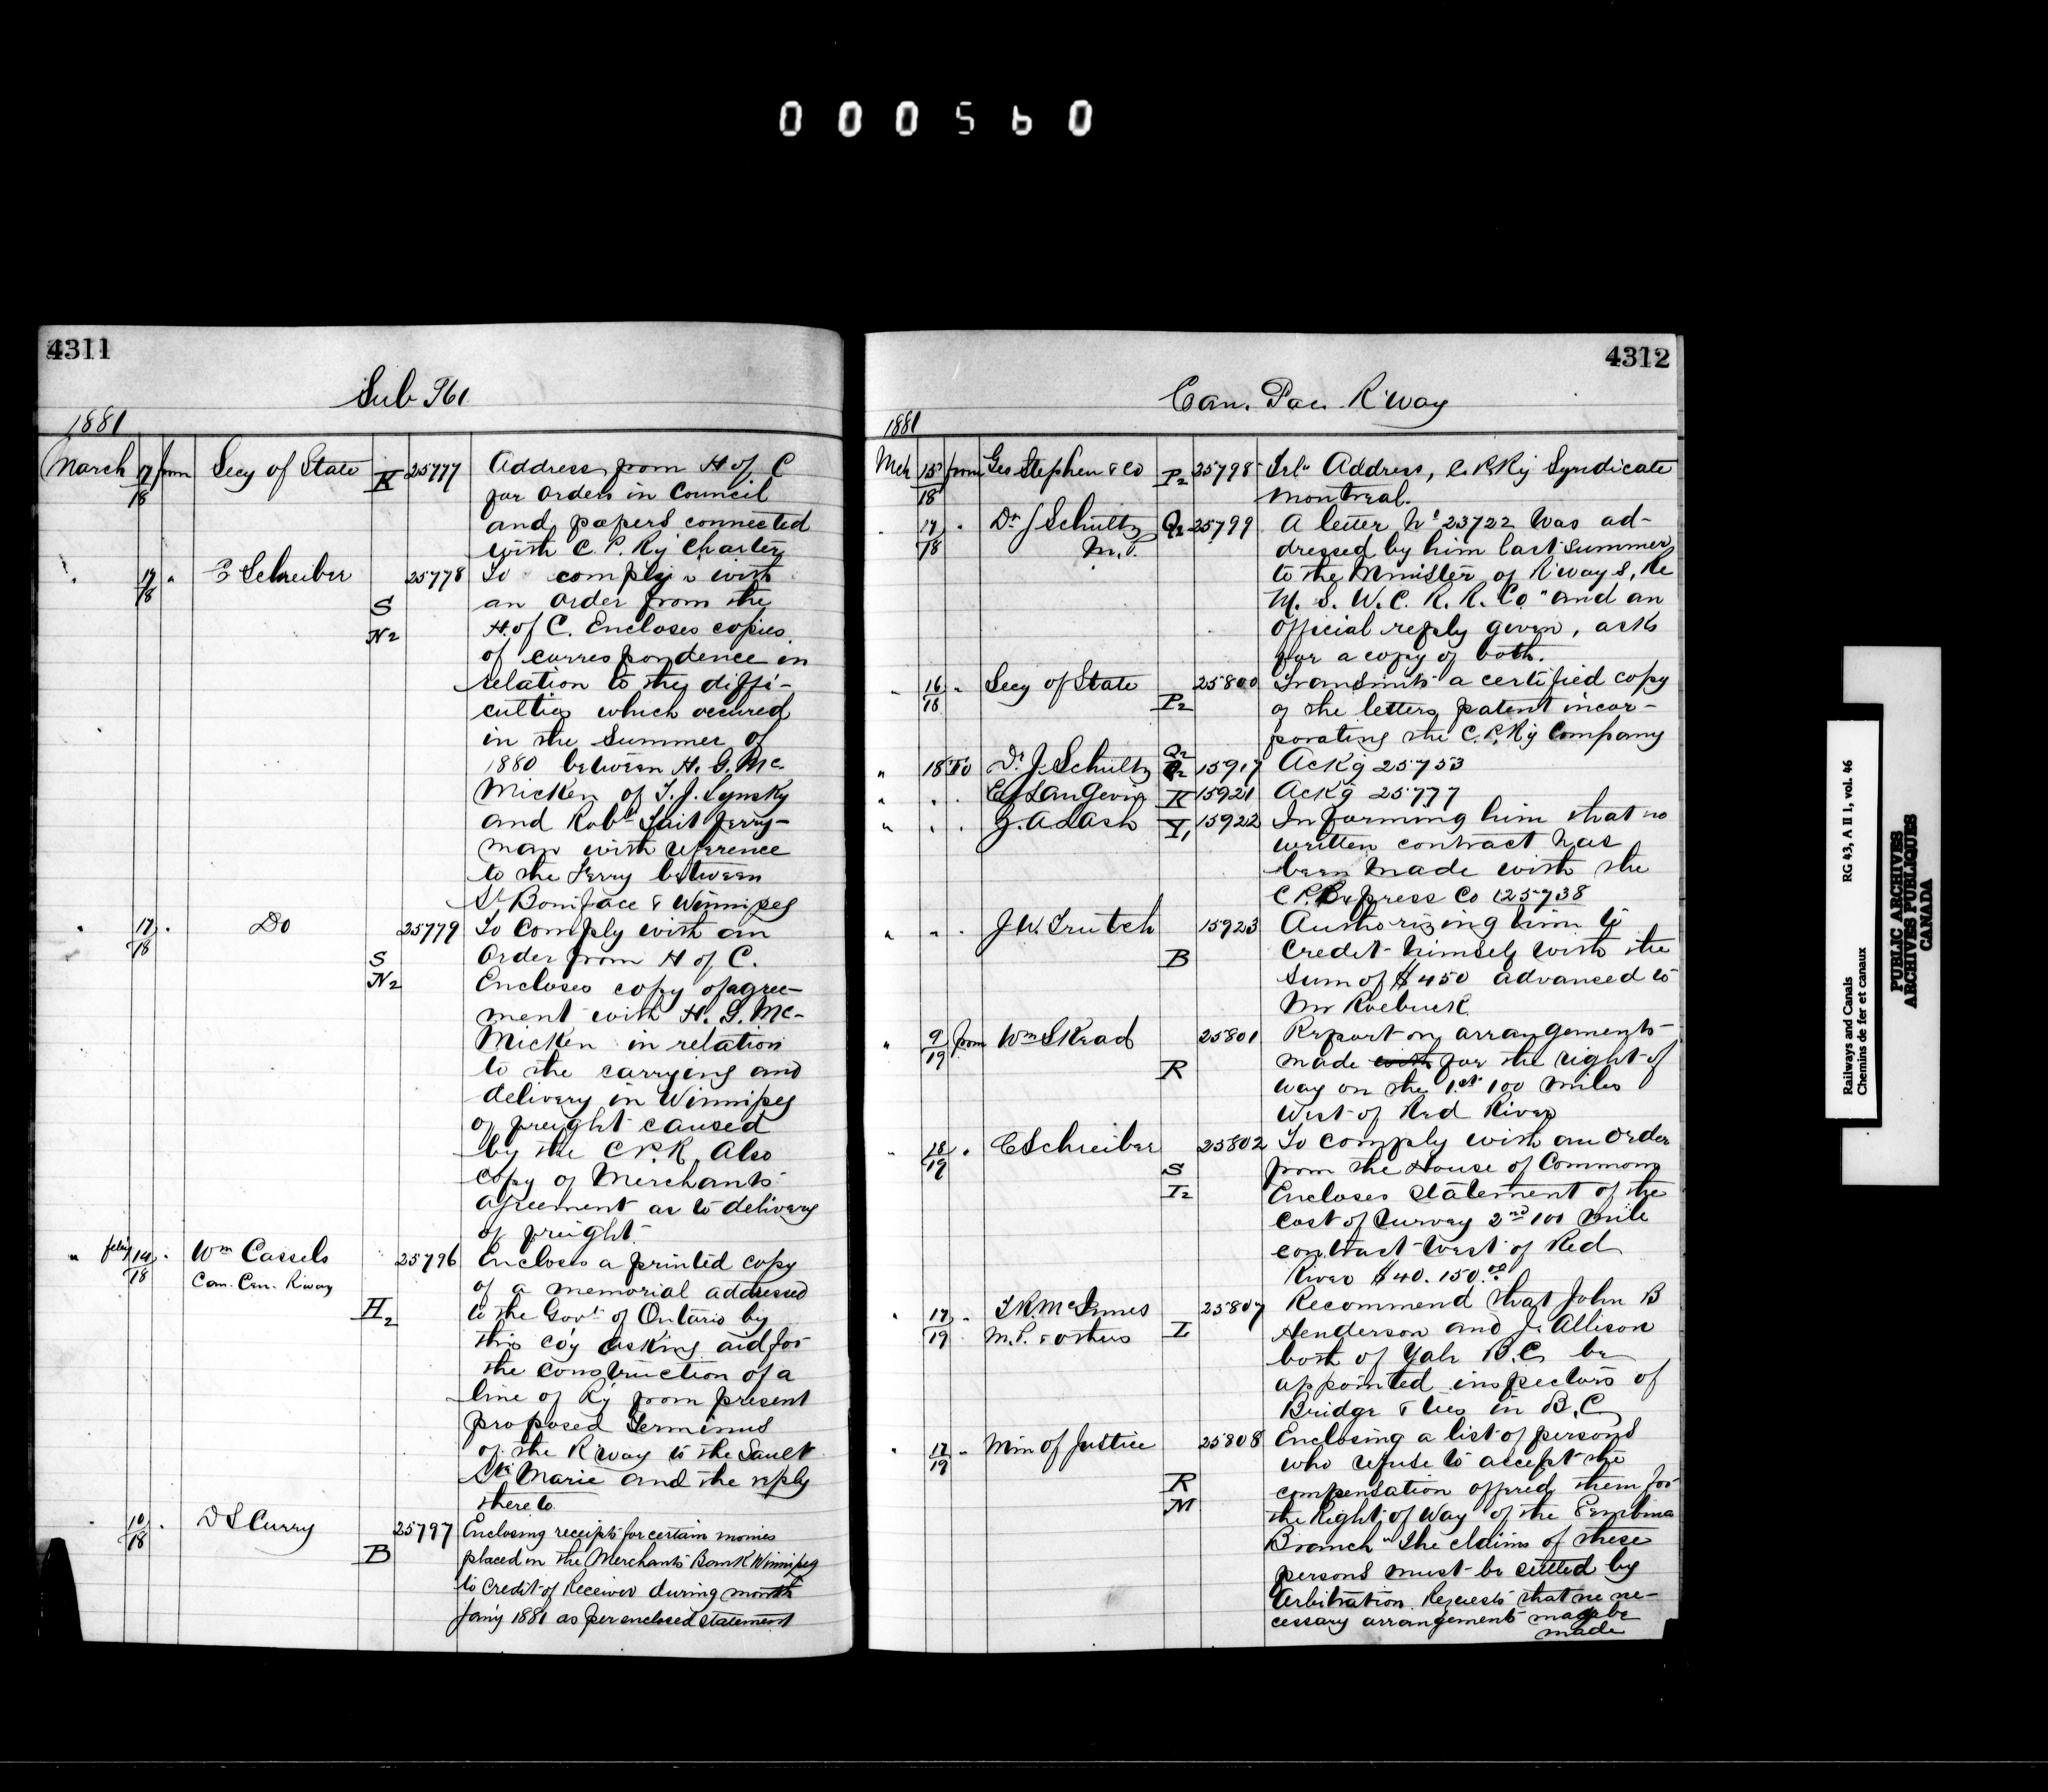 000560
4311
Sub 961
1881
March 17/18 from Secy of State K 25777 Address from H of C
for Orders in Council
and papers connected
with C. P. Ry Charter
" 17/18 " C Schreiber 25778 To comply with
S an order from the
N2 H. of C. Encloses copies
of correspondence in
relation to the diffi-
culties which occured
in the Summer of
1880 between H. G. Mc-
Micken of T. J. Lynsky
and Robt Tait ferry-
man with reference
to the Ferry between
St Boniface & Winnipeg
" 17/18 " Do 25779 To Comply with an
S Order from H of C.
N2 Encloses copy of agree-
ment with H. G. Mc-
Micken in relation
to the carrying and
delivery in Winnipeg
of freight caused
by the C P. R. Also
copy of Merchants
agreement as to delivery
of freight.
" feby 14/18 " Wm Cassels 25796 Encloses a printed copy
Can. Cen. Riway of a memorial addressed
H2 to the Govt of Ontario by
this co'y asking aid for
the construction of a
line of Ry from present
proposed Terminus
of the R'way to the Sault
Ste Marie and the reply
thereto
" 10/18 " D S Curry 25797 Enclosing receipts for certain monies
B placed in the Merchants Bank Winnipeg
to credit of Receiver during month
Jan'y 1881 as per enclosed statement
4312
Can. Pac. R'way
1881
Mch 15/18 from Geo Stephen & Co P2 25798 Address, C. P. Ry Syndicate
Montreal.
" 17/18 " Dr J Schultz Q2 25799 A letter No 23722 was ad-
M. P. dressed by him last summer
to the Minister of R'ways, Re
M. S. W. C. R. R. Co " and an
official reply given, asks
for a copy of both.
" 16/18 " Secy of State 25800 Transmits a certified copy
P2 of the letters patent incor-
porating the C. P. Ry Company
" 18 To Dr J. Schultz Q2 15917 Ackg 25753
" " " E J Langevin K 15921 Ackg 25777
" " " J. A Lash Y1 15922 Informing him that no
written contract has
been made with the
C P. Express Co (25738
" " " J W. Trutch 15923 Authorizing him to
B credit himself with the
sum of $450 advanced to
Mr Roebuck
" 9/19 from Wm Skead 25801 Report on arrangements
R made with for the right of
way on the 1st 100 miles
West of Red River
" 18/19 " C Schreiber 25802 To comply with an order
S from the House of Commons
I2 Encloses statement of the
cost of Survey 2nd 100 mile
contract West of Red
River $40.150.00
" 17/19 " T. R. McInnes 25807 Recommend that John B
M. P. & others I Henderson and J. Allison
both of Yale B. C. be
appointed inspectors of
Bridge & ties in B. C
" 17/19 " Min of Justice 25808 Enclosing a list of persons
who refuse to accept the
R compensation offered them for
M the Right of Way of the Pembina
Branch " The claims of these
persons must be settled by
Arbitration. Requests that ne ne-
cessary arrangements may be
made
Railways and Canals RG 43, A II 1, vol. 46
Chemins de fer et canaux
PUBLIC ARCHIVES
ARCHIVES PUBLIQUES
CANADA